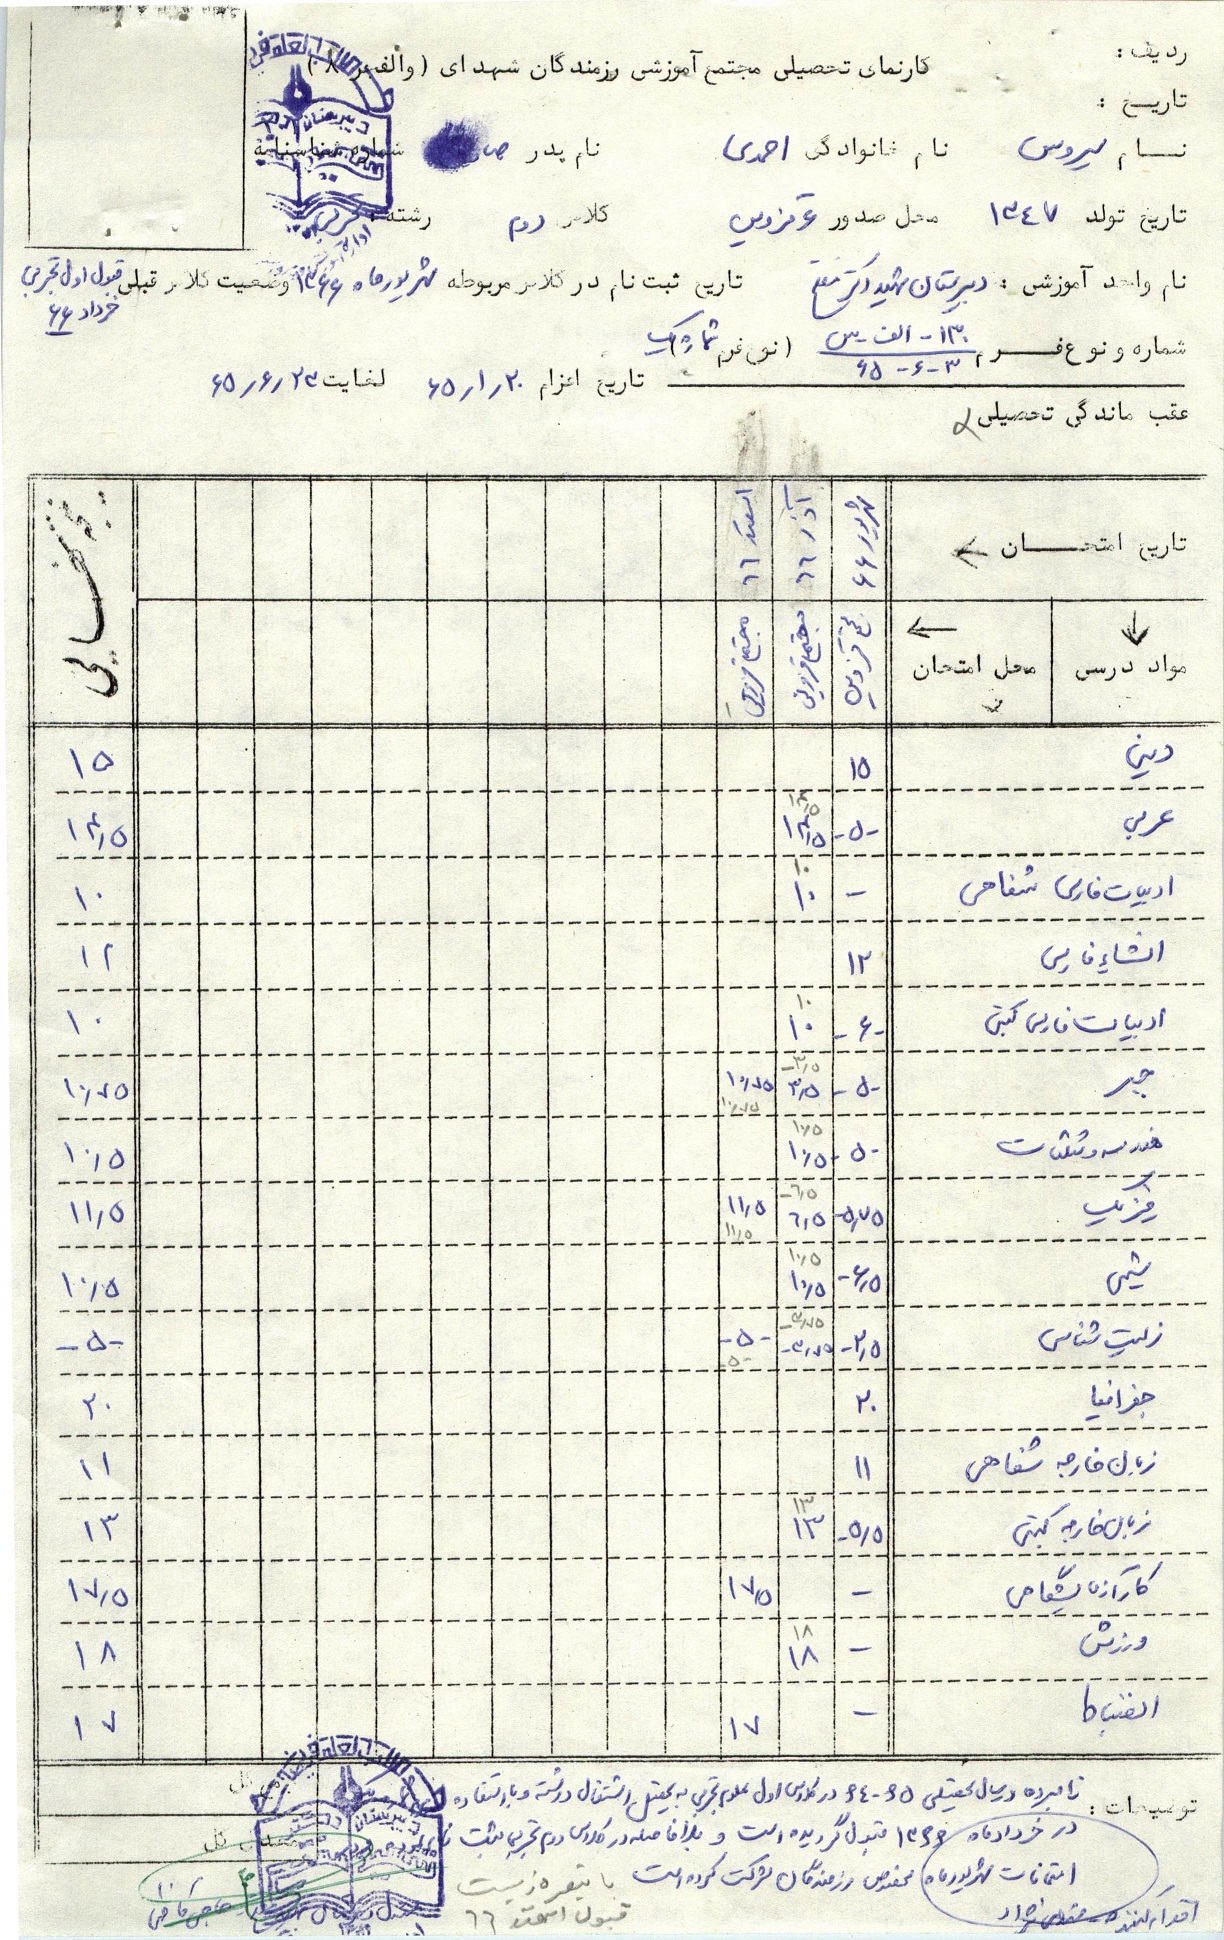 ردیف :
کارنمای تحصیلی مجتمع آموزشی رزمندگان شهدای ( والفجر ۸ )
تاریخ :
نام سیروس نام خانوادگی احمدی نام پدر شماره شناسنامه
تاریخ تولد ۱۳٤۷ محل صدور قزوین کلاس دوم رشته :
نام واحد آموزشی : دبیرستان شهید دکتر مفتح تاریخ ثبت نام در کلاس مربوطه شهریورماه ۱۳۶۶ وضعیت کلاس قبلی قبول اول تجربی
خرداد ۶۶
شماره و نوع فرم ۱۳۰ - الف - س ( نوع فرم شماره یک )
۳-۶-۶۵
تاریخ اعزام ۶۵/۱/۲۰ لغایت ۶۵/۶/۲۳
عقب ماندگی تحصیلی
تاریخ امتحان شهریور ۶۶ آذر ٦٦ اسفند ٦٦ نتیجه نهایی
مواد درسی محل امتحان مجتمع قزوین مجتمع قزوین مجتمع قزوین
دینی ۱۵ ۱۵
عربی -۵- ۱۴/۵ ۱۴/۵ ۱۴/۵
ادبیات فارسی شفاهی - ۱۰ ۱۰ ۱۰
انشاء فارسی ۱۲ ۱۲
ادبیات فارسی کتبی -۶- ۱۰ ۱۰ ۱۰
جبر -۵- ۳/۵ ۳/۵ ۱۰/۷۵ ۱۰/۷۵ ۱۰/۷۵
هندسه و مثلثات -۵- ۱۰/۵ ۱۰/۵ ۱۰/۵
فیزیک -۵/۷۵ ٦/۵ ٦/۵ ۱۱/۵ ۱۱/۵ ۱۱/۵
شیمی -۶/۵ ۱۰/۵ ۱۰/۵ ۱۰/۵
زیست شناسی -۲/۵ -۳/۷۵ -۳/۷۵ -۵- -۵- -۵-
جغرافیا ۲۰ ۲۰
زبان خارجه شفاهی ۱۱ ۱۱
زبان خارجه کتبی -۵/۵ ۱۳ ۱۳ ۱۳
کار آزمایشگاهی - ۱۷/۵ ۱۷/۵
ورزش - ۱۸ ۱۸ ۱۸
انضباط - ۱۷ ۱۷
توضیحات : نامبرده در سال تحصیلی ۶۵-۶٤ در کلاس اول علوم تجربی به تحصیل اشتغال داشته و با استفاده
در خردادماه ۱۳۶۶ قبول گردیده است و بلافاصله در کلاس دوم تجربی ثبت نام
امتحانات شهریورماه مخصوص رزمندگان شرکت کرده است با تبصره زیست
قبول اسفند ٦٦
اقدام کننده